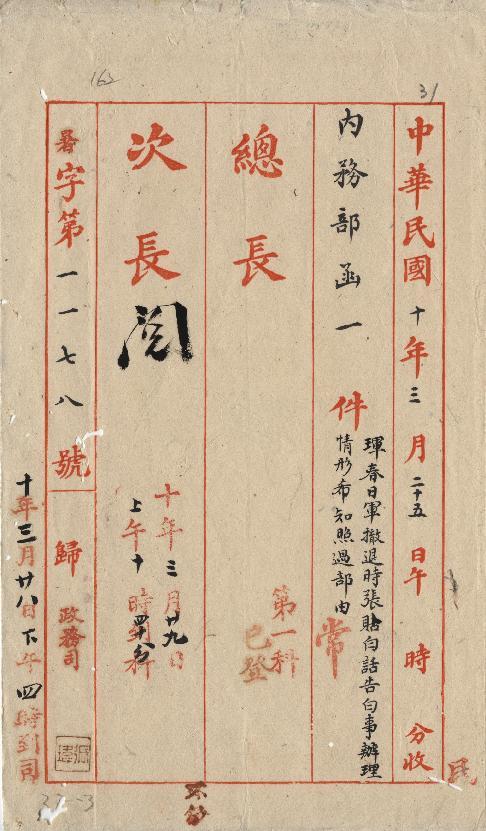 163
31
中華民國十年三月二十五日午時分收
內務部函一件
琿春日軍撤退時張貼白話告白事辦理
情形希知照過部由
常
總長
第一科
已登
次長
閱
十年三月廿九日
上午十時四十分到科
署字第一一七八號
歸政務司
十年三月廿八日下午四時到司